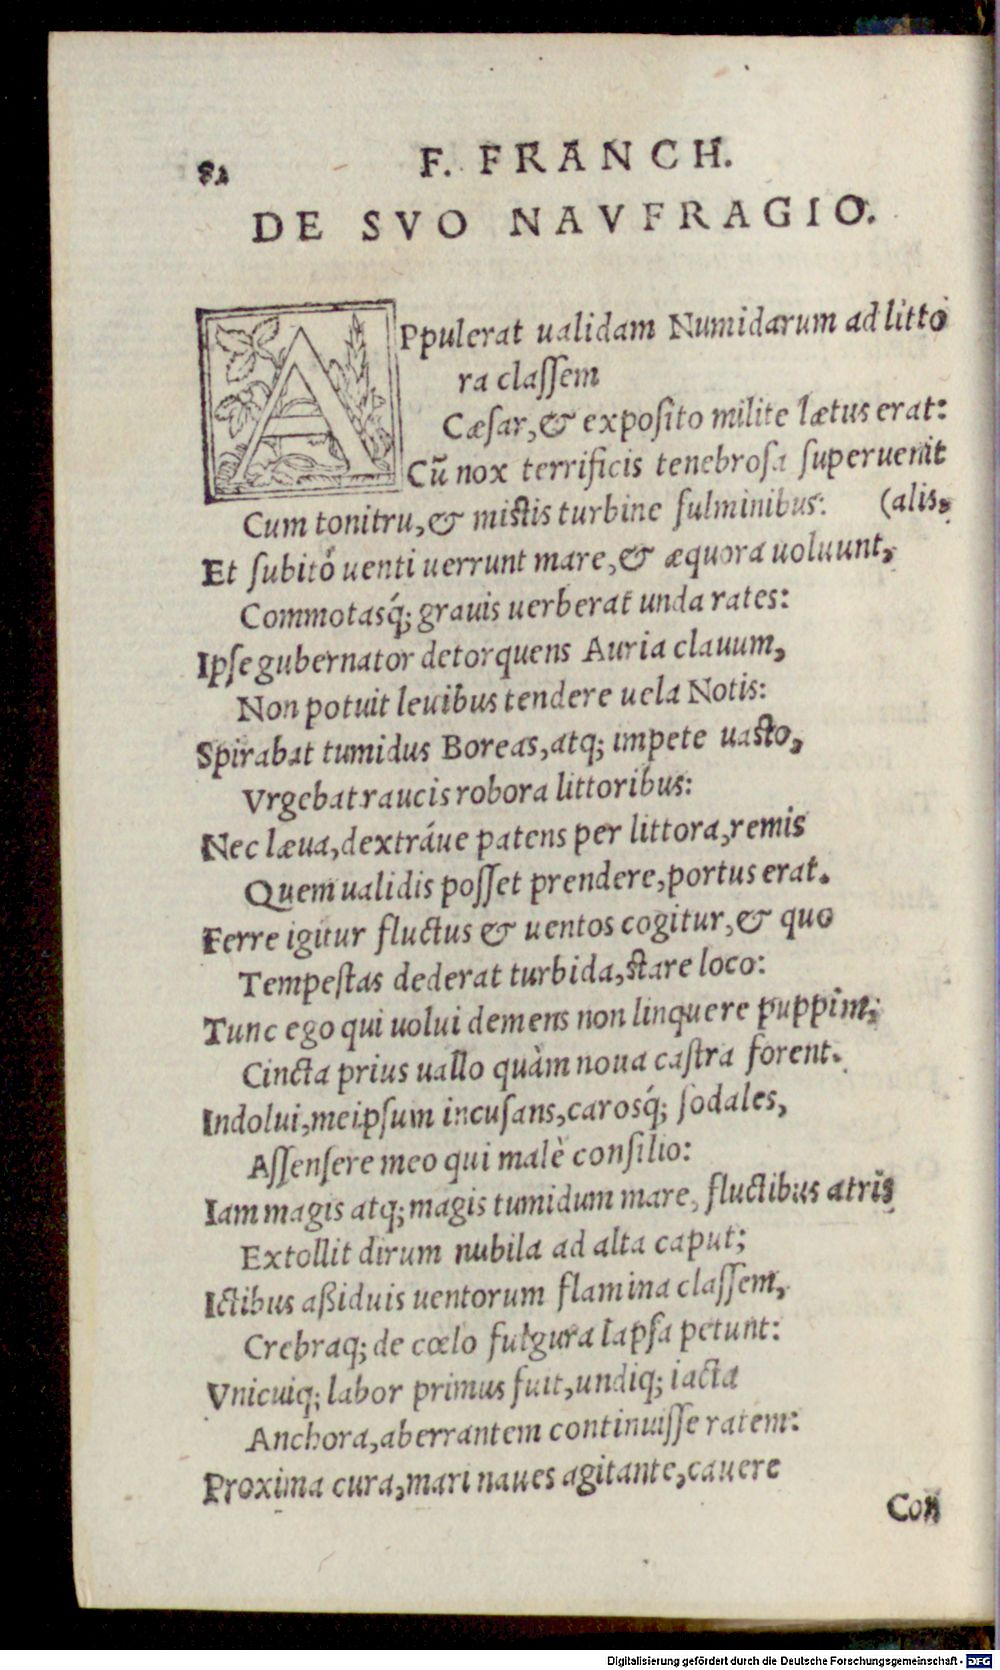 82
F. FRANCH.
DE SVO NAVFRAGIO.
APpulerat ualidam Numidarum ad litto
ra claſſem
Cæſar, & expoſito milite lætus erat:
Cū nox terrificis tenebroſa ſuperuenit
Cum tonitru, & miſtis turbine fulminibus: (alis,
Et ſubitò uenti uerrunt mare, & æquora uoluunt,
Commotasq́; grauis uerberat unda rates:
Ipſe gubernator detorquens Auria clauum,
Non potuit leuibus tendere uela Notis:
Spirabat tumidus Boreas, atq; impete uaſto,
Vrgebat raucis robora littoribus:
Nec læua, dextráue patens per littora, remis
Quem ualidis poſſet prendere, portus erat.
Ferre igitur fluctus & uentos cogitur, & quo
Tempeſtas dederat turbida, ſtare loco:
Tunc ego qui uolui demens non linquere puppim,
Cincta prius uallo quàm noua caſtra forent.
Indolui, meipſum incuſans, carosq́; ſodales,
Aſſenſere meo qui malè conſilio:
Iam magis atq; magis tumidum mare, fluctibus atris
Extollit dirum nubila ad alta caput;
Ictibus aßiduis uentorum flamina claſſem,
Crebraq; de cœlo fulgura lapſa petunt:
Vnicuiq; labor primus fuit, undiq; iacta
Anchora, aberrantem continuiſſe ratem:
Proxima cura, mari naues agitante, cauere
Con
Digitalisierung gefördert durch die Deutsche Forschungsgemeinschaft - DFG